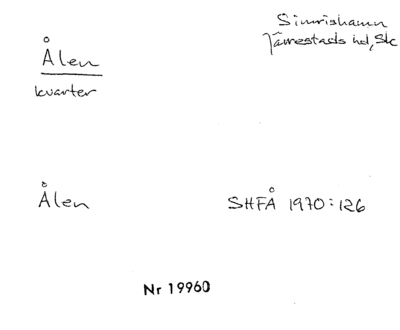 Simrishamn
Järrestads hd, Sk
Ålen
kvarter
Ålen SHFÅ 1970:126
Nr 19960